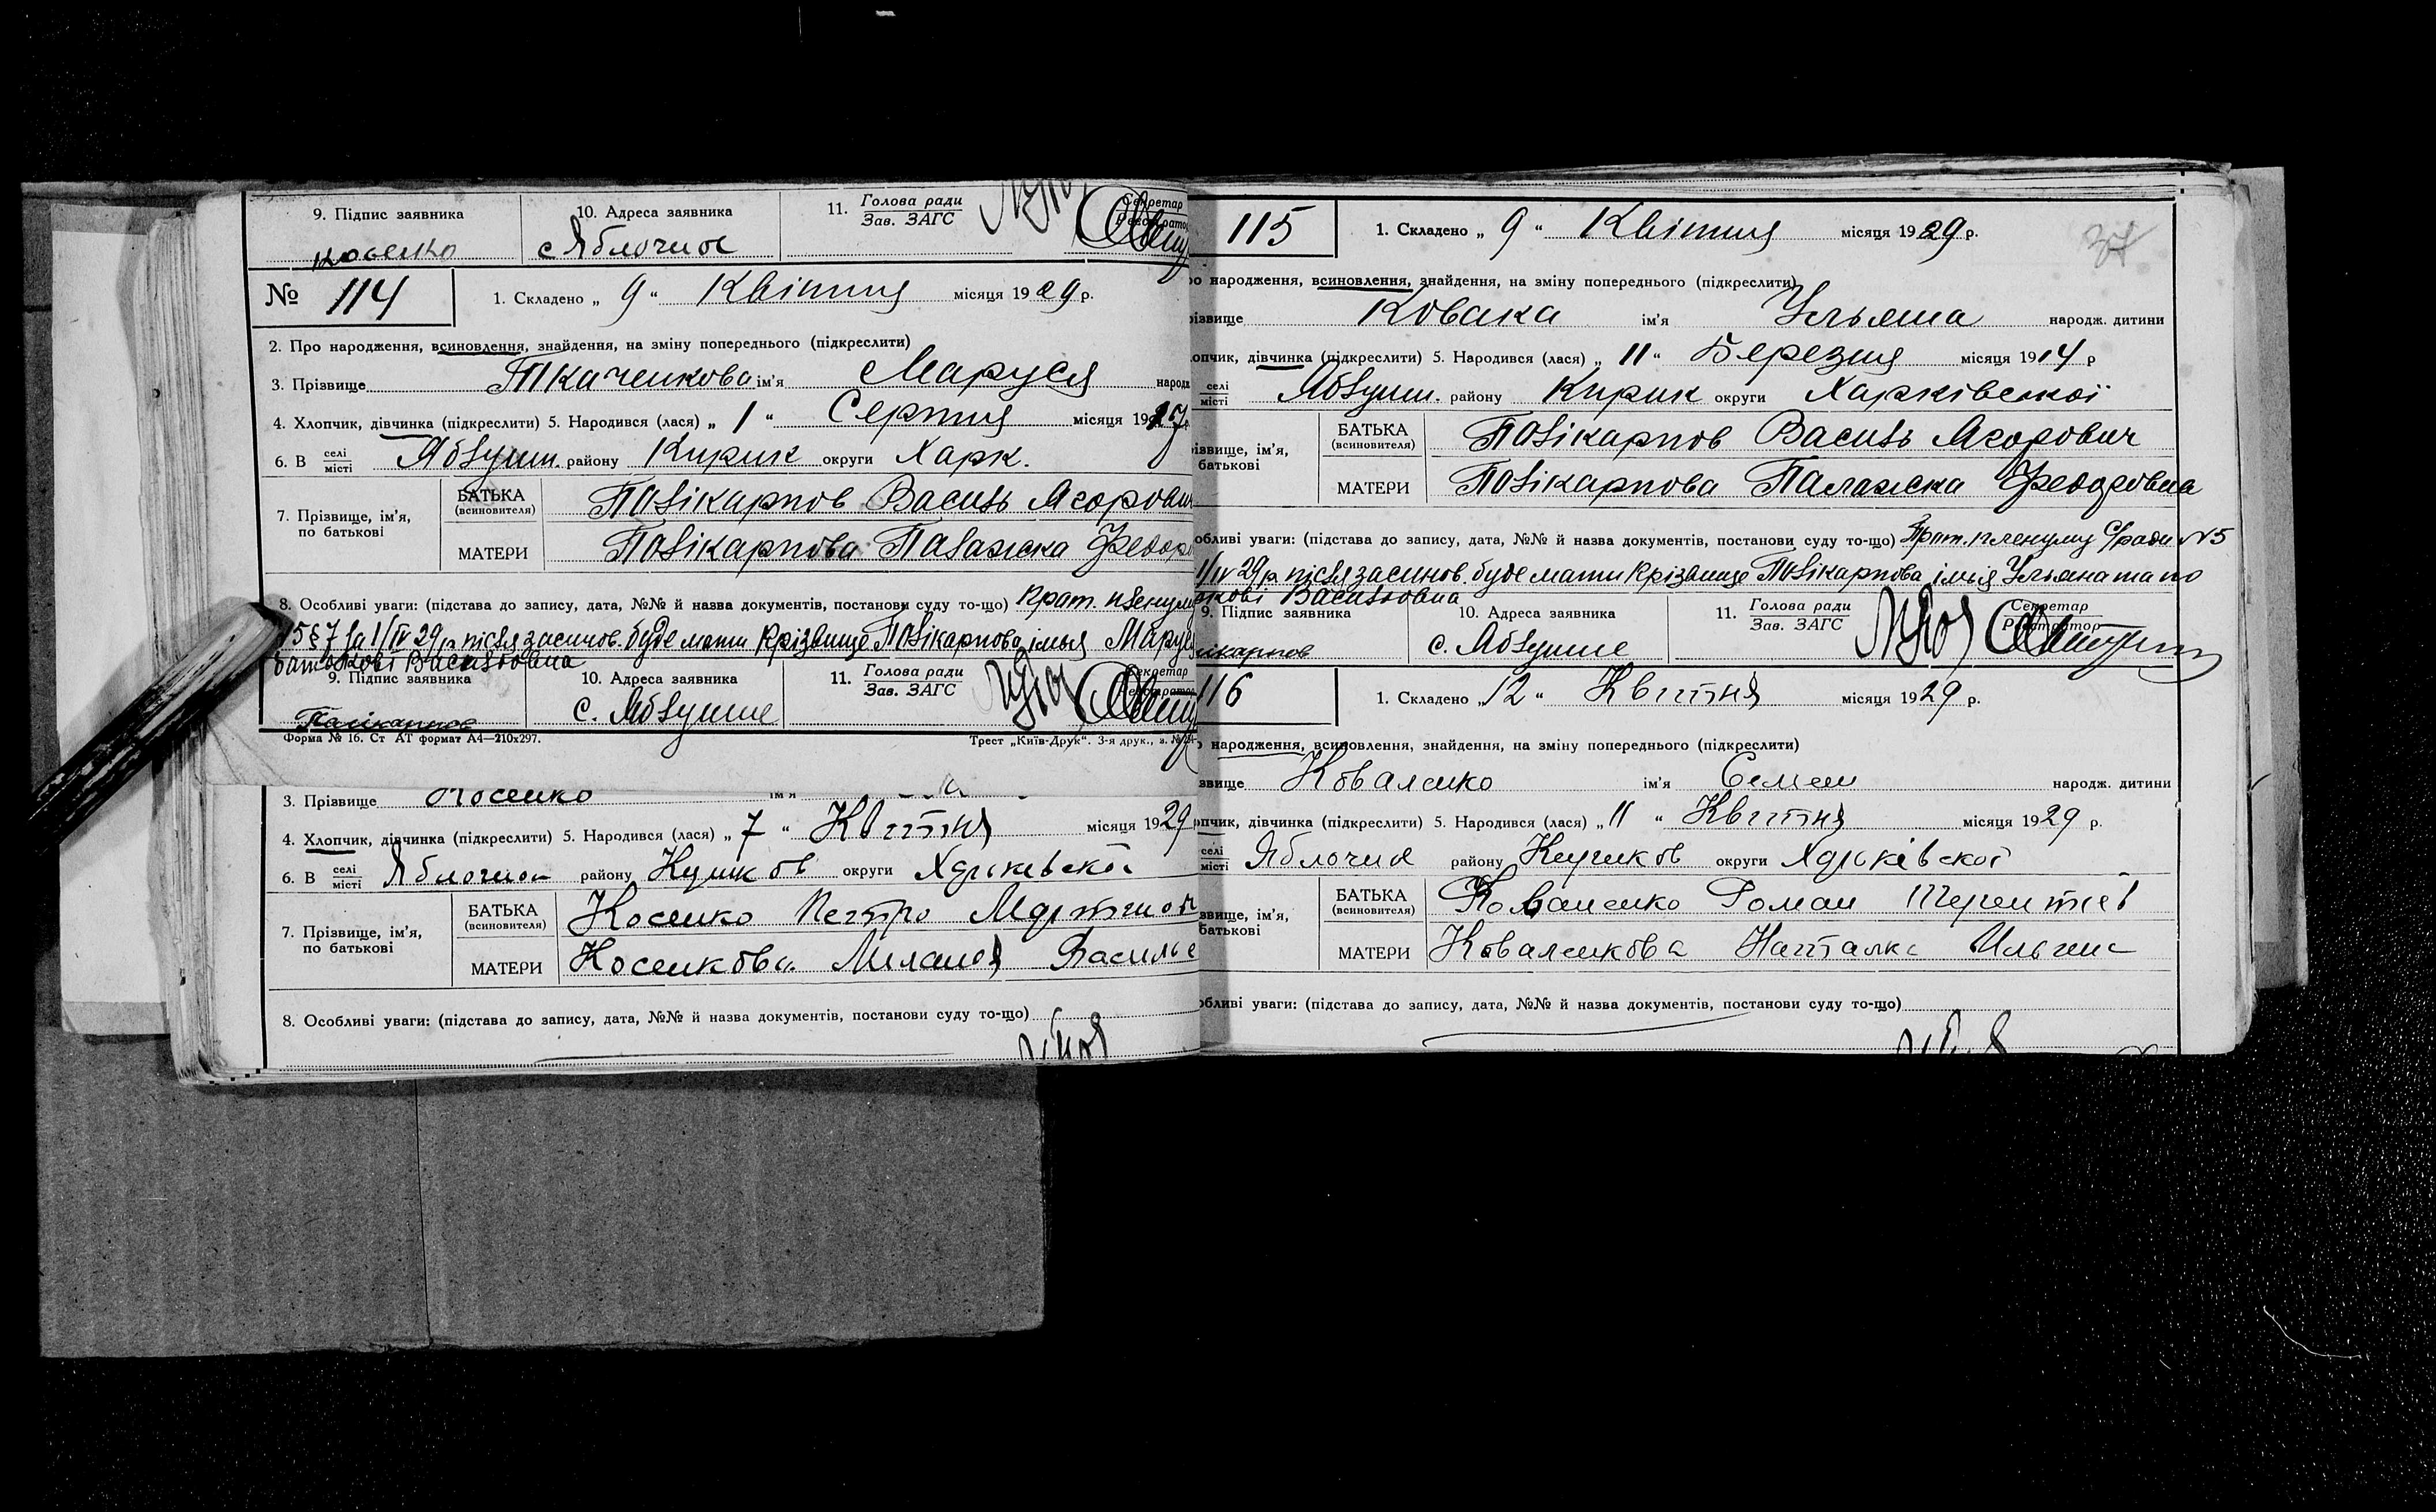 9. Підпис заявника
10. Адреса заявника
11. Голова ради
Зав. ЗАГС
Секретар
Косенко
с Яблочное
№ 114
1. Складено „ 9 “ Квітня місяця 1929 р.
2. Про народження, всиновлення, знайдення, на зміну попереднього (підкреслити)
3. Прізвище Ткаченкова ім'я Маруся народ
4. Хлопчик, дівчинка (підкреслити) 5. Народився (лася) „ 1 “ Серпня місяця 19
6. В селі
місті
Яблушн. району Кирик округи Харк.
7. Прізвище, ім'я,
по батькові
БАТЬКА
(всиновителя)
Полікарпов Василь Ягорович
МАТЕРИ
Полікарпова Палажка Федор
8. Особливі уваги: (підстава до запису, дата, №№ й назва документів, постанови суду то-що) Прот. пленуму
5 § 7 за 1/IV 29 р після засинов. буде мати прізвище Полікарпова імья Маруся
батькові Васильовна
9. Підпис заявника
10. Адреса заявника
11. Голова ради
Зав. ЗАГС
Секретар
Реєстратор
Полікарпов
с. Яблушне
Форма № 16. Ст АТ формат А4—210х297.
Трест „Київ-Друк“. 3-я друк., з. №
3. Прізвище Косенко ім'я
4. Хлопчик, дівчинка (підкреслити) 5. Народився (лася) „ 7 “ Квитня місяця 1929
6. В селі
місті
Яблочное району округи Харківської
7. Прізвище, ім'я,
по батькові
БАТЬКА
(всиновителя)
Косенко Петро Мартинов
МАТЕРИ
Косенкова Мелания Василье
8. Особливі уваги: (підстава до запису, дата, №№ й назва документів, постанови суду то-що)
115
1. Складено „ 9 “ Квітня місяця 1929 р.
37
о народження, всиновлення, знайдення, на зміну попереднього (підкреслити)
різвище Ковака ім'я Ульяна народж. дитини
опчик, дівчинка (підкреслити) 5. Народився (лася) „ 11 “ Березня місяця 1914 р
селі
місті
Яблушн. району Кирик округи Харківської
ізвище, ім'я,
батькові
БАТЬКА
(всиновителя)
Полікарпов Василь Ягорович
МАТЕРИ
Полікарпова Палажка Федоровна
обливі уваги: (підстава до запису, дата, №№ й назва документів, постанови суду то-що) Прот. пленуму С/ради №5
1/IV 29 р після засинов. буде мати прізвище Полікарпова імья Ульяна та по
ькові Васильовна
9. Підпис заявника
10. Адреса заявника
11. Голова ради
Зав. ЗАГС
Секретар
Реєстратор
ікарпов
с. Яблушне
116
1. Складено „ 12 “ Квитня місяця 1929 р.
о народження, всиновлення, знайдення, на зміну попереднього (підкреслити)
звище Коваленко ім'я Семен народж. дитини
опчик, дівчинка (підкреслити) 5. Народився (лася) „ 11 “ Квитня місяця 1929 р.
селі
місті
Яблочно району округи Харківської
звище, ім'я,
батькові
БАТЬКА
(всиновителя)
Коваленко Роман Терентіев
МАТЕРИ
Коваленкова Наталка
обливі уваги: (підстава до запису, дата, №№ й назва документів, постанови суду то-що)